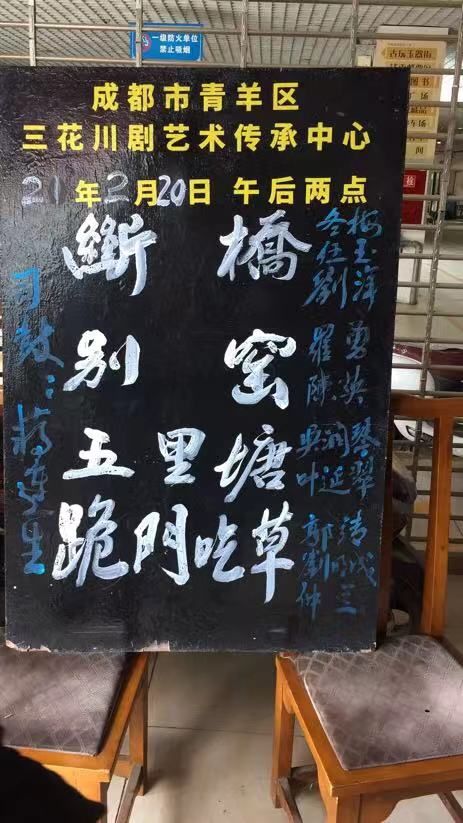 一级防火单位
禁止吸烟
成都市青羊区
三花川剧艺术传承中心
21年2月20日 午后两点
斷橋
别窑
五里塘
跪門吃草
冬梅
伍玉
劉萍
羅勇
陳英
吳润琴
叶延翠
郭清
劉成
仲三
司鼓:蒋
生